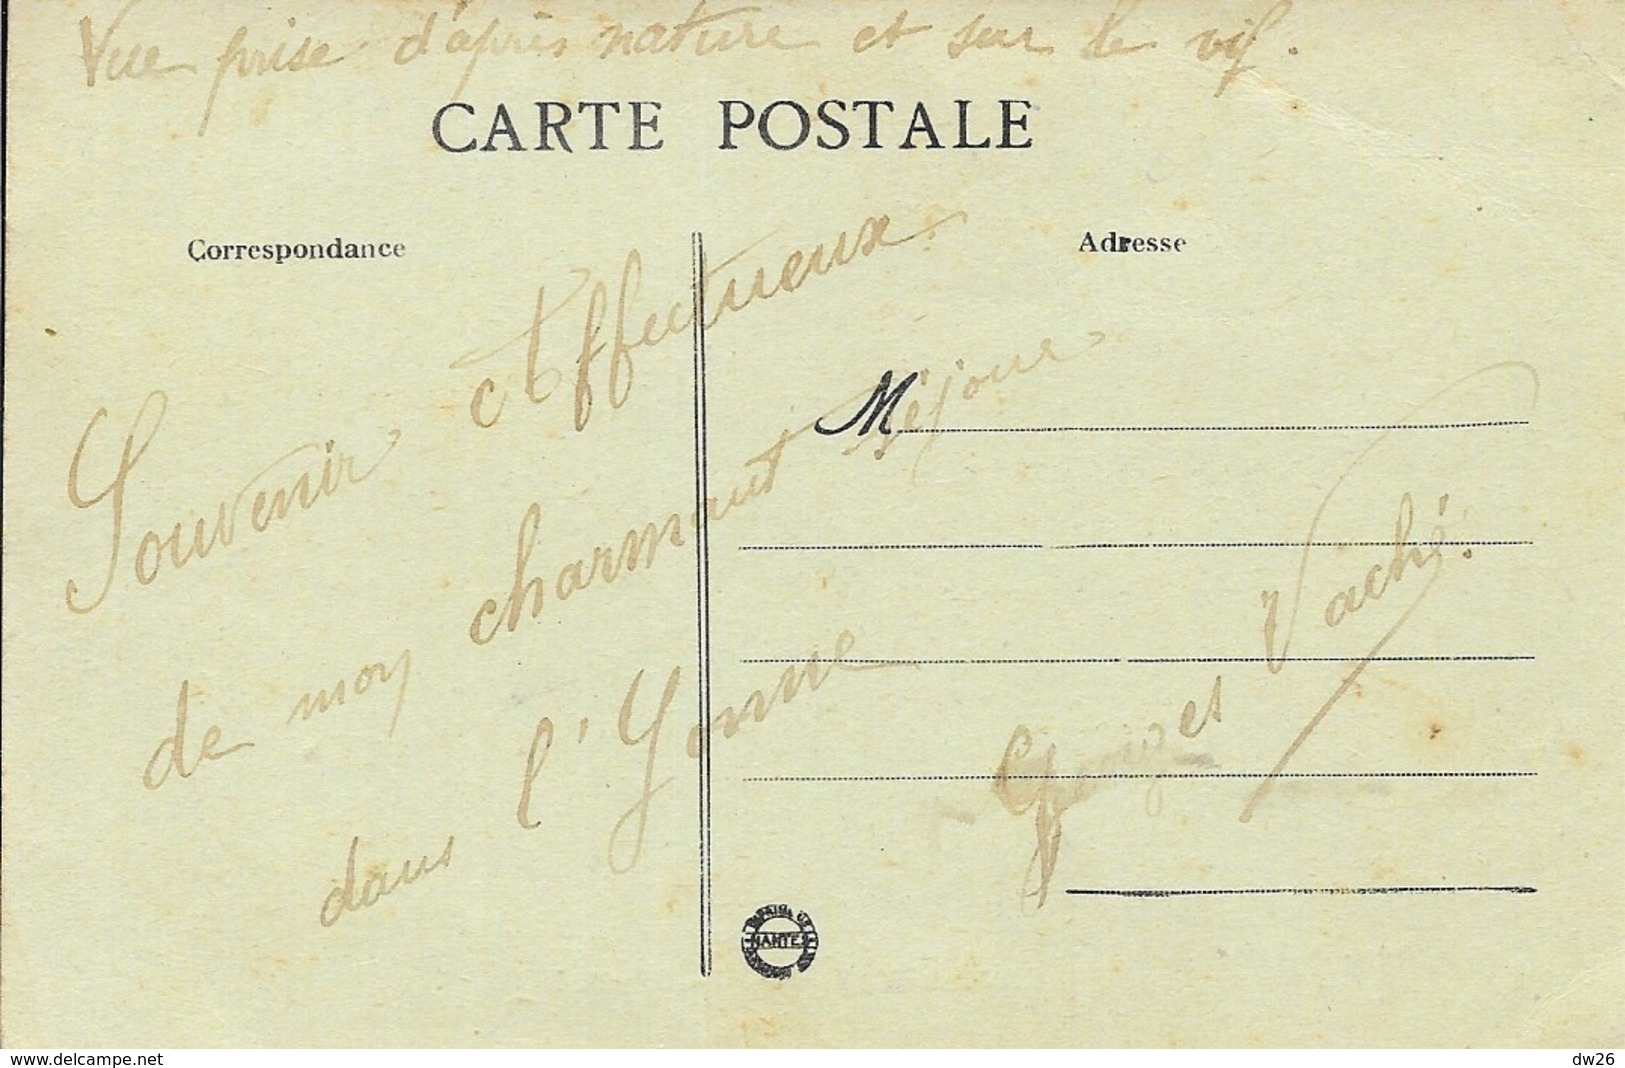 Vue prise d'après nature et sur le vif.
CARTE POSTALE
Correspondance
Adresse
Souvenir Affectueux
de mon charmant séjour
dans l'Yonne
M
Georges Vaché.
NANTES
www.delcampe.net
dw26